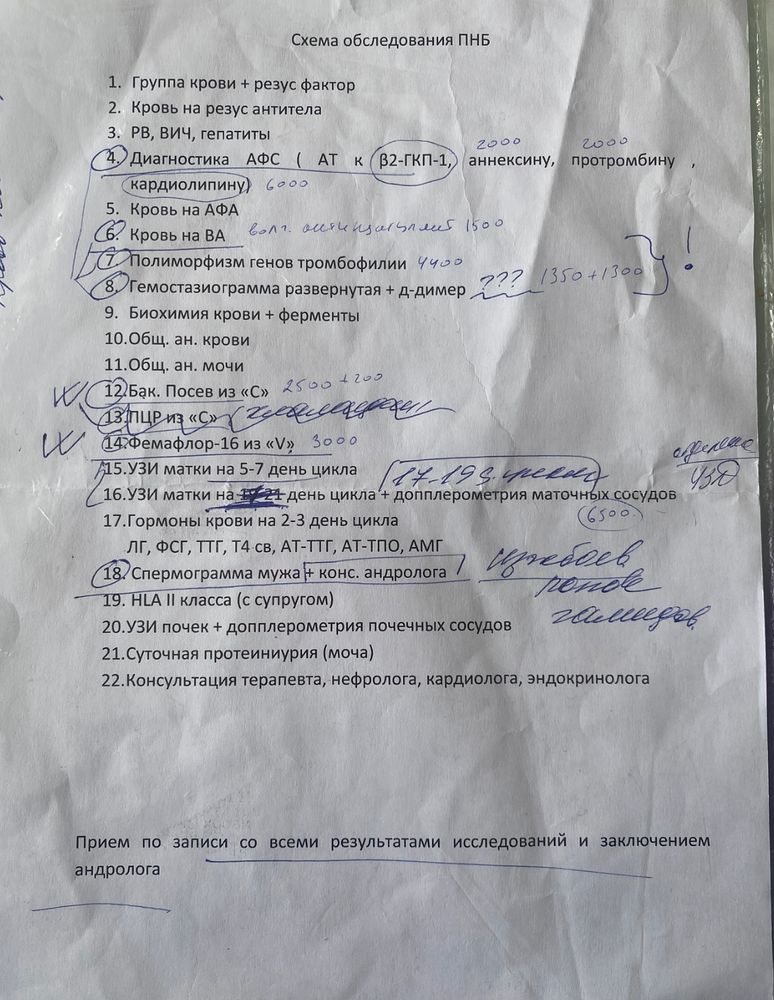 Схема обследования ПНБ
1. Группа крови + резус фактор
2. Кровь на резус антитела
3. РВ, ВИЧ, гепатиты
2000 2000
4. Диагностика АФС ( АТ к β2-ГКП-1, аннексину, протромбину ,
кардиолипину) 6000
5. Кровь на АФА
6. Кровь на ВА волч. антикоагулянт 1500
7. Полиморфизм генов тромбофилии 4400
8. Гемостазиограмма развернутая + д-димер ??? 1350 + 1300 !
9. Биохимия крови + ферменты
10.Общ. ан. крови
11.Общ. ан. мочи
12.Бак. Посев из «С» 2500 + 200
13.ПЦР из «С»
14.Фемафлор-16 из «V» 3000
15.УЗИ матки на 5-7 день цикла 17-19 д. УЗД
16.УЗИ матки на 17-21 день цикла + допплерометрия маточных сосудов
17.Гормоны крови на 2-3 день цикла 6500
ЛГ, ФСГ, ТТГ, Т4 св, АТ-ТТГ, АТ-ТПО, АМГ
18.Спермограмма мужа + конс. андролога
19. HLA II класса (с супругом)
20.УЗИ почек + допплерометрия почечных сосудов
21.Суточная протеиниурия (моча)
22.Консультация терапевта, нефролога, кардиолога, эндокринолога
Прием по записи со всеми результатами исследований и заключением
андролога